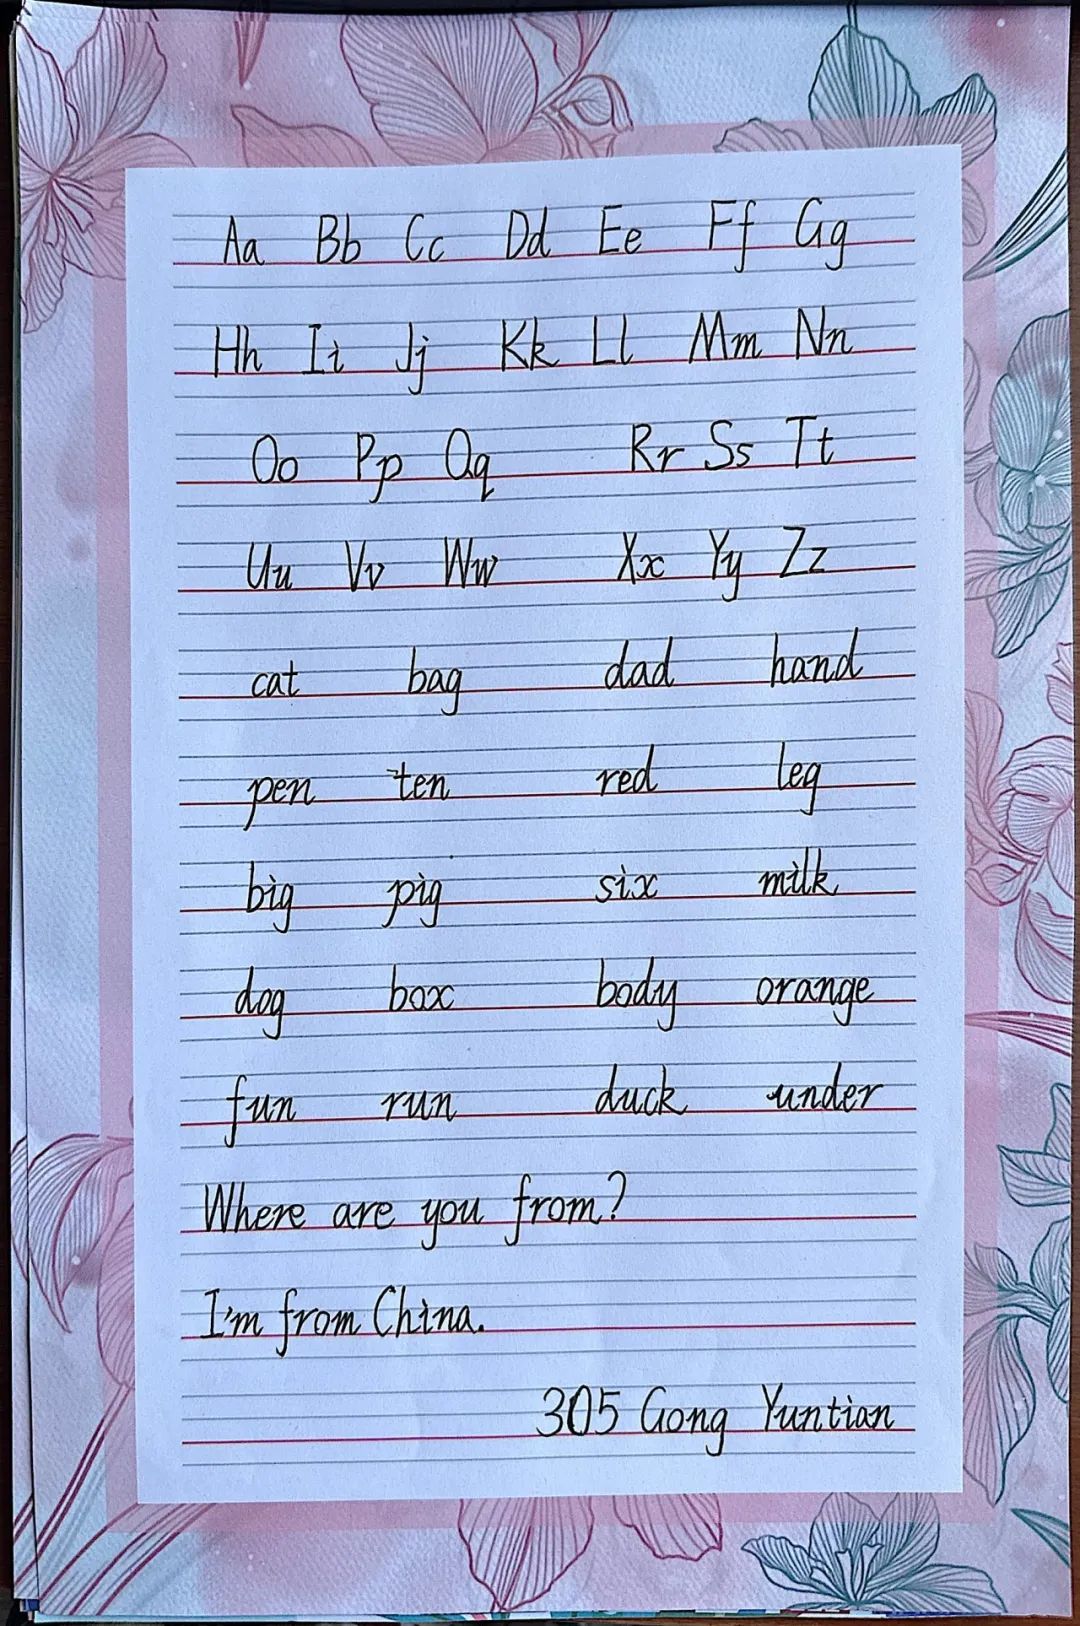 Aa Bb Cc Dd Ee Ff Gg
Hh Ii Jj Kk Ll Mm Nn
Oo Pp Qq Rr Ss Tt
Uu Vv Ww Xx Yy Zz
cat bag dad hand
pen ten red leg
big pig six milk
dog box body orange
fun run duck under
Where are you from?
I'm from China.
305 Gong Yuntian